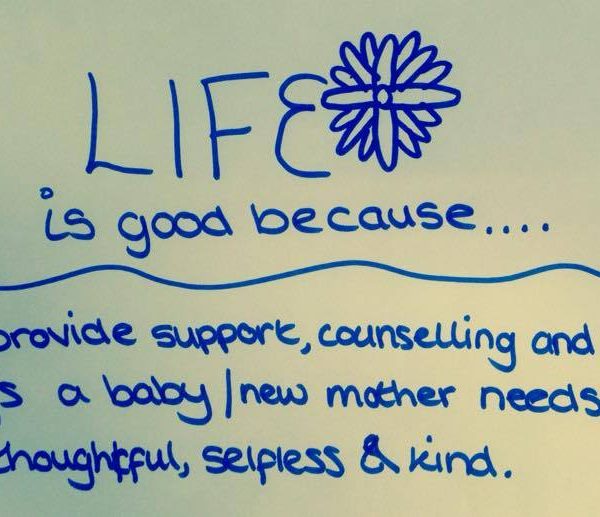 LIFE
is good because....
provide support, counselling and
s a baby/new mother needs
thoughtful, selfless & kind.